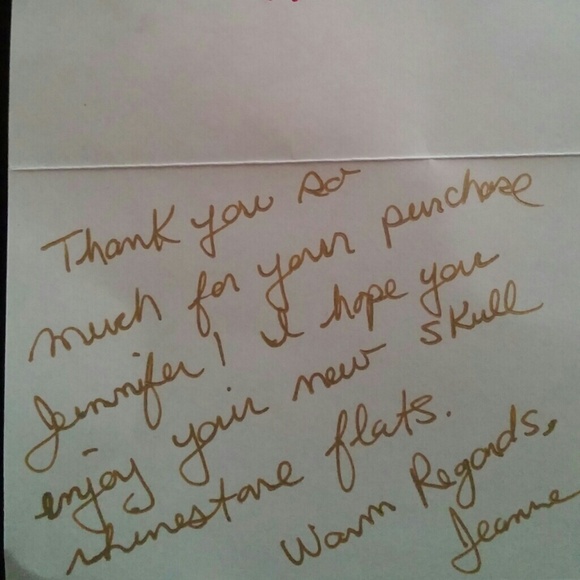 Thank you so
much for your purchase
Jennifer! I hope you
enjoy your new skull
rhinestone flats.
Warm Regards,
Jeanne